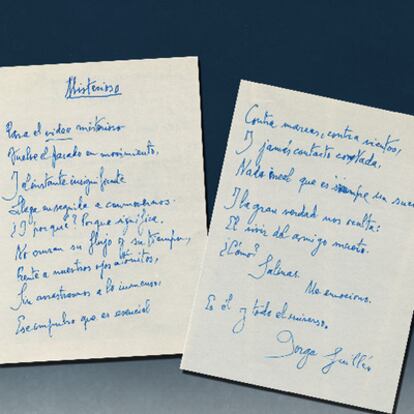 Misterioso
Pasa el video misterioso
Vuelve el pasado en movimiento,
Y el instante insignificante
Llega en seguida a conmovernos.
¿Y por qué? Porque significa.
No su flujo y su tiempo,
Frente a nuestros ojos atónitos,
Sin arrastrarnos a lo inmenso.
Ese impulso que es esencial
Contra mareas, contra vientos,
Y jamás contacto
Nada que es siempre un
Y la gran verdad nos resulta:
El vivir del amigo muerto.
¿Cómo?
Salinas.
Me emociono.
Es él y todo el universo.
Jorge Guillén